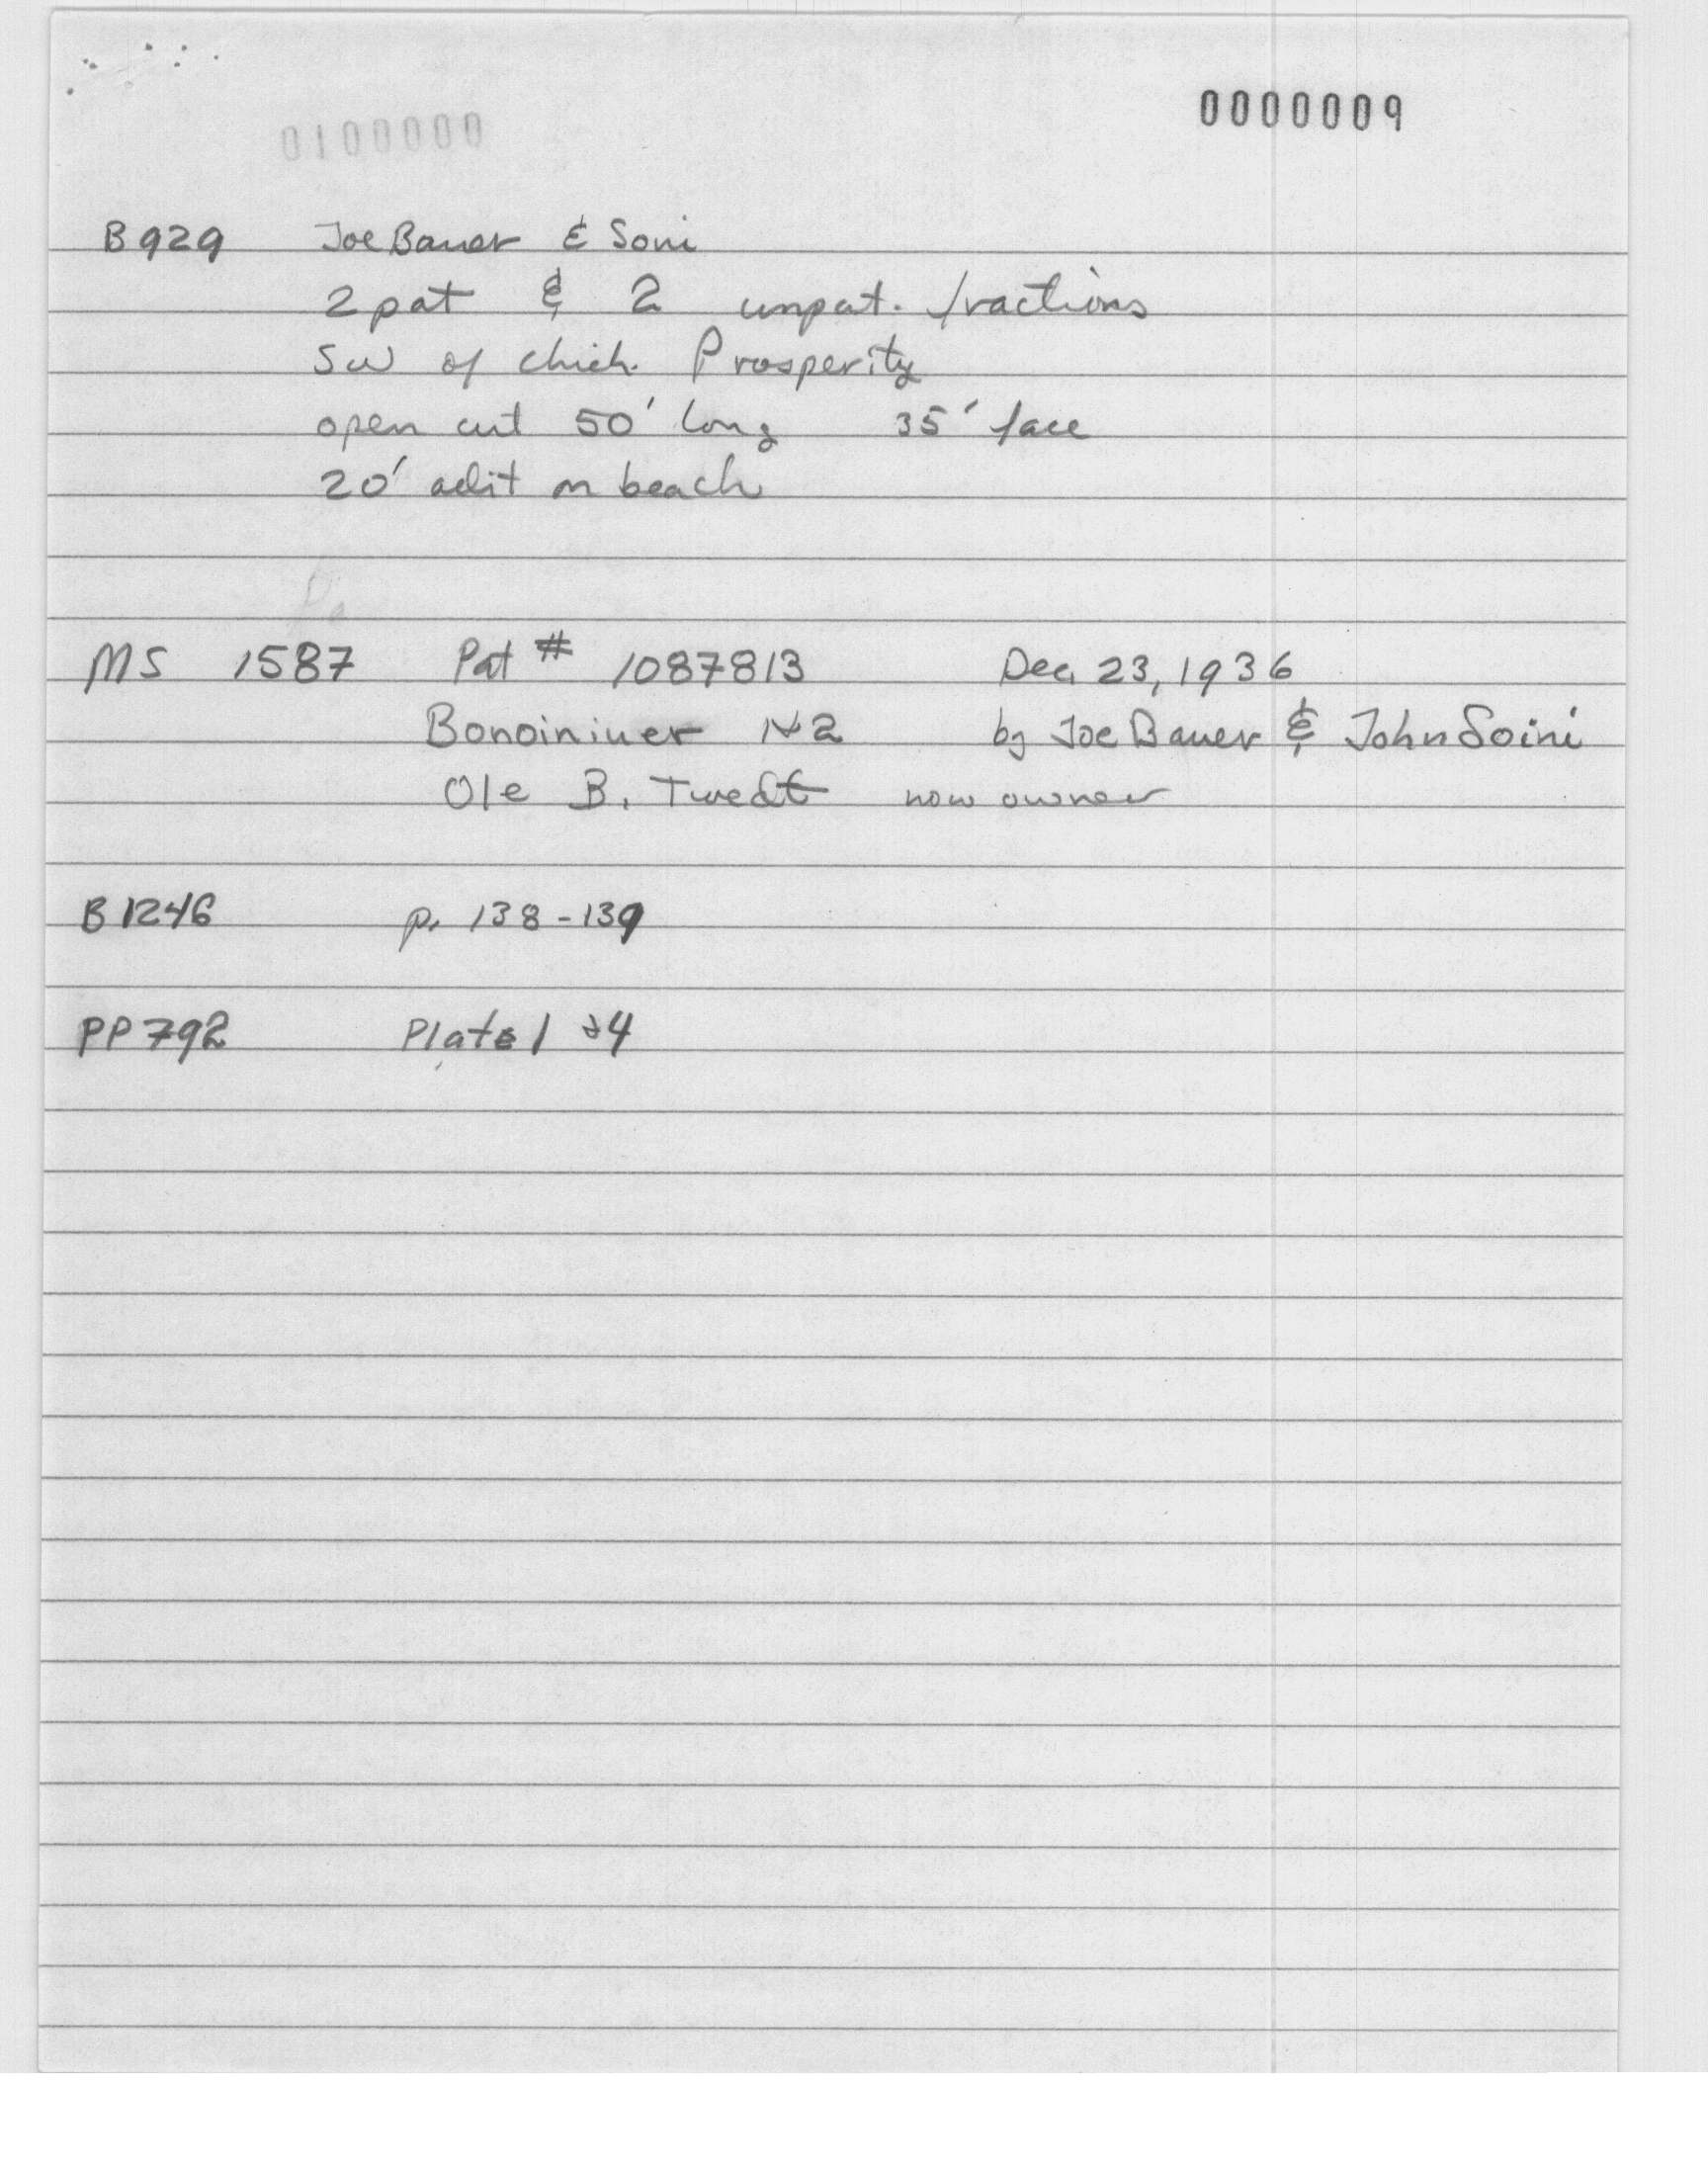 0000009
0100000
B 929 Joe Bauer & Soni
2 pat & 2 unpat. fractions
SW of Chich. Prosperity
open cut 50' long 35' face
20' adit on beach
MS 1587 Pat # 1087813 Dec. 23, 1936
Bonoininer N2 by Joe Bauer & John Soini
Ole B. Twedt now owner
B 1246 p. 138-139
PP 792 Plate 1 #4